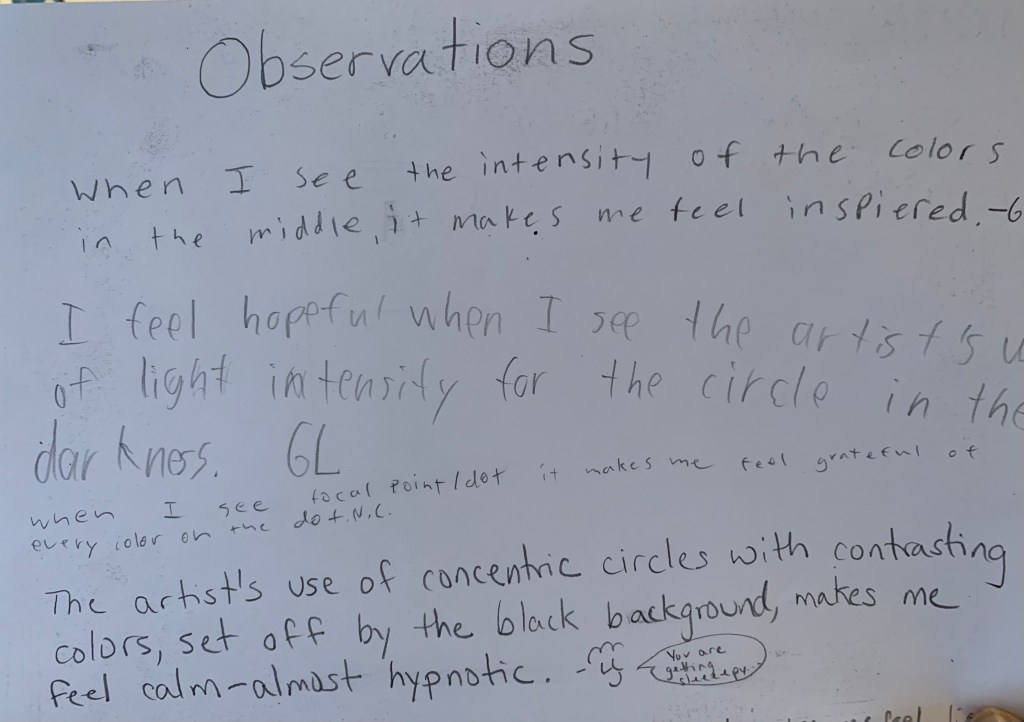 Observations
when I see the intensity of the colors
in the middle, it makes me feel inspiered. -6
I feel hopeful when I see the artist's
of light intensity for the circle in the
darkness. GL
when I see focal point/dot it makes me feel grateful of
every color on the dot. N.C.
The artist's use of concentric circles with contrasting
colors, set off by the black background, makes me
feel calm-almost hypnotic.
You are
getting
feel